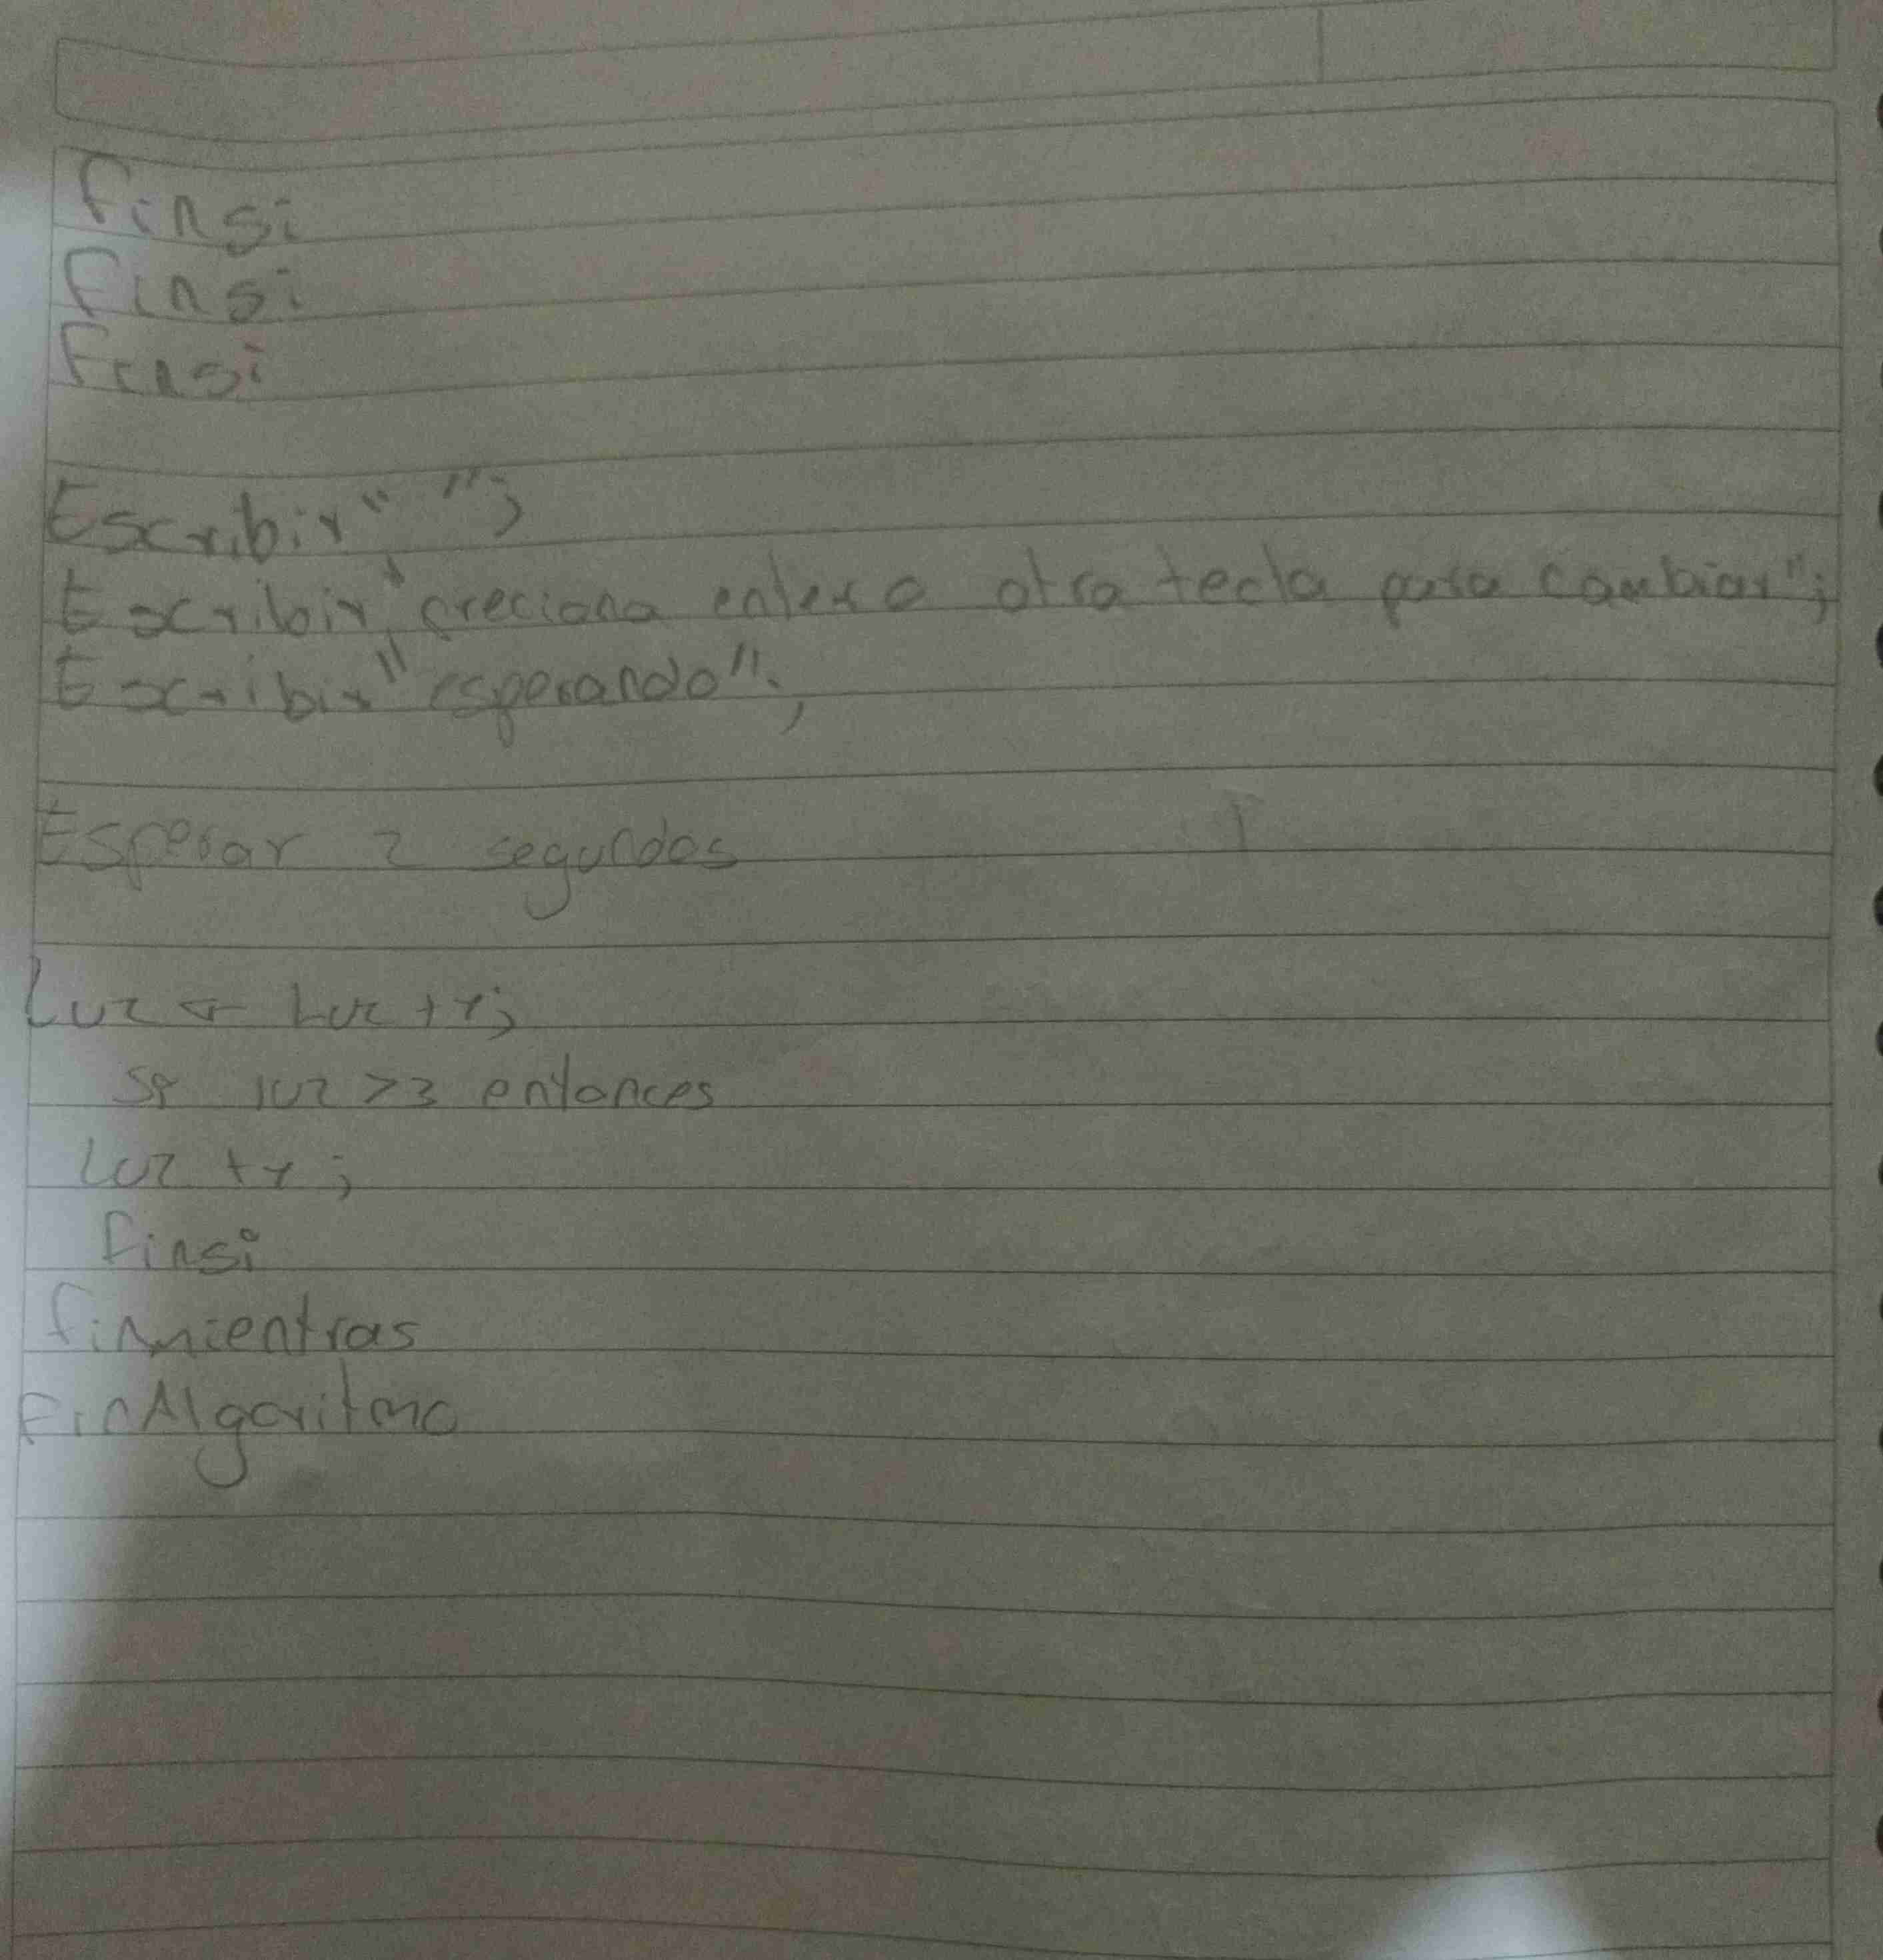 finsi
finsi
Finsi
Escribir" ";
Escribir "preciona enter o otra tecla para cambiar";
Escribir "esperando";
Esperar 2 segundos
luz ← Luz +1;
si luz >3 entonces
luz +1;
finsi
finmientras
FinAlgoritmo